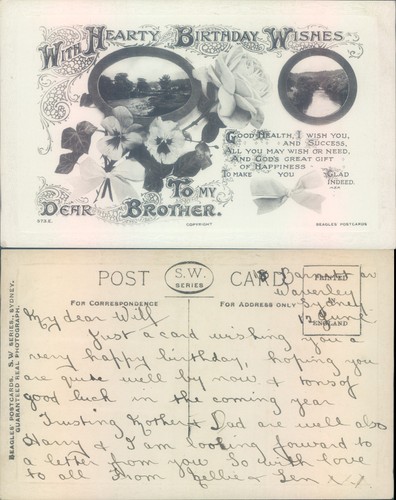 With Hearty Birthday Wishes
Good Health, I wish you,
and Success,
All you may wish or need,
And God's great gift
of Happiness
To make you Glad
indeed.
To my
Dear Brother.
COPYRIGHT
BEAGLES POSTCARDS
POST S.W. SERIES CARD
For Correspondence
For Address only
PRINTED
ENGLAND
BEAGLES' POSTCARDS. S.W. SERIES, SYDNEY.
GUARANTEED REAL PHOTOGRAPH.
Waverley
Sydney
12 June
My dear Will
Just a card wishing you a
very happy birthday, hoping you
are quite well by now & tons of
good luck in the coming year
Trusting Mother & Dad are well also
Harry & I am looking forward to
a letter from you. So with love
to all from Nellie & Len XX